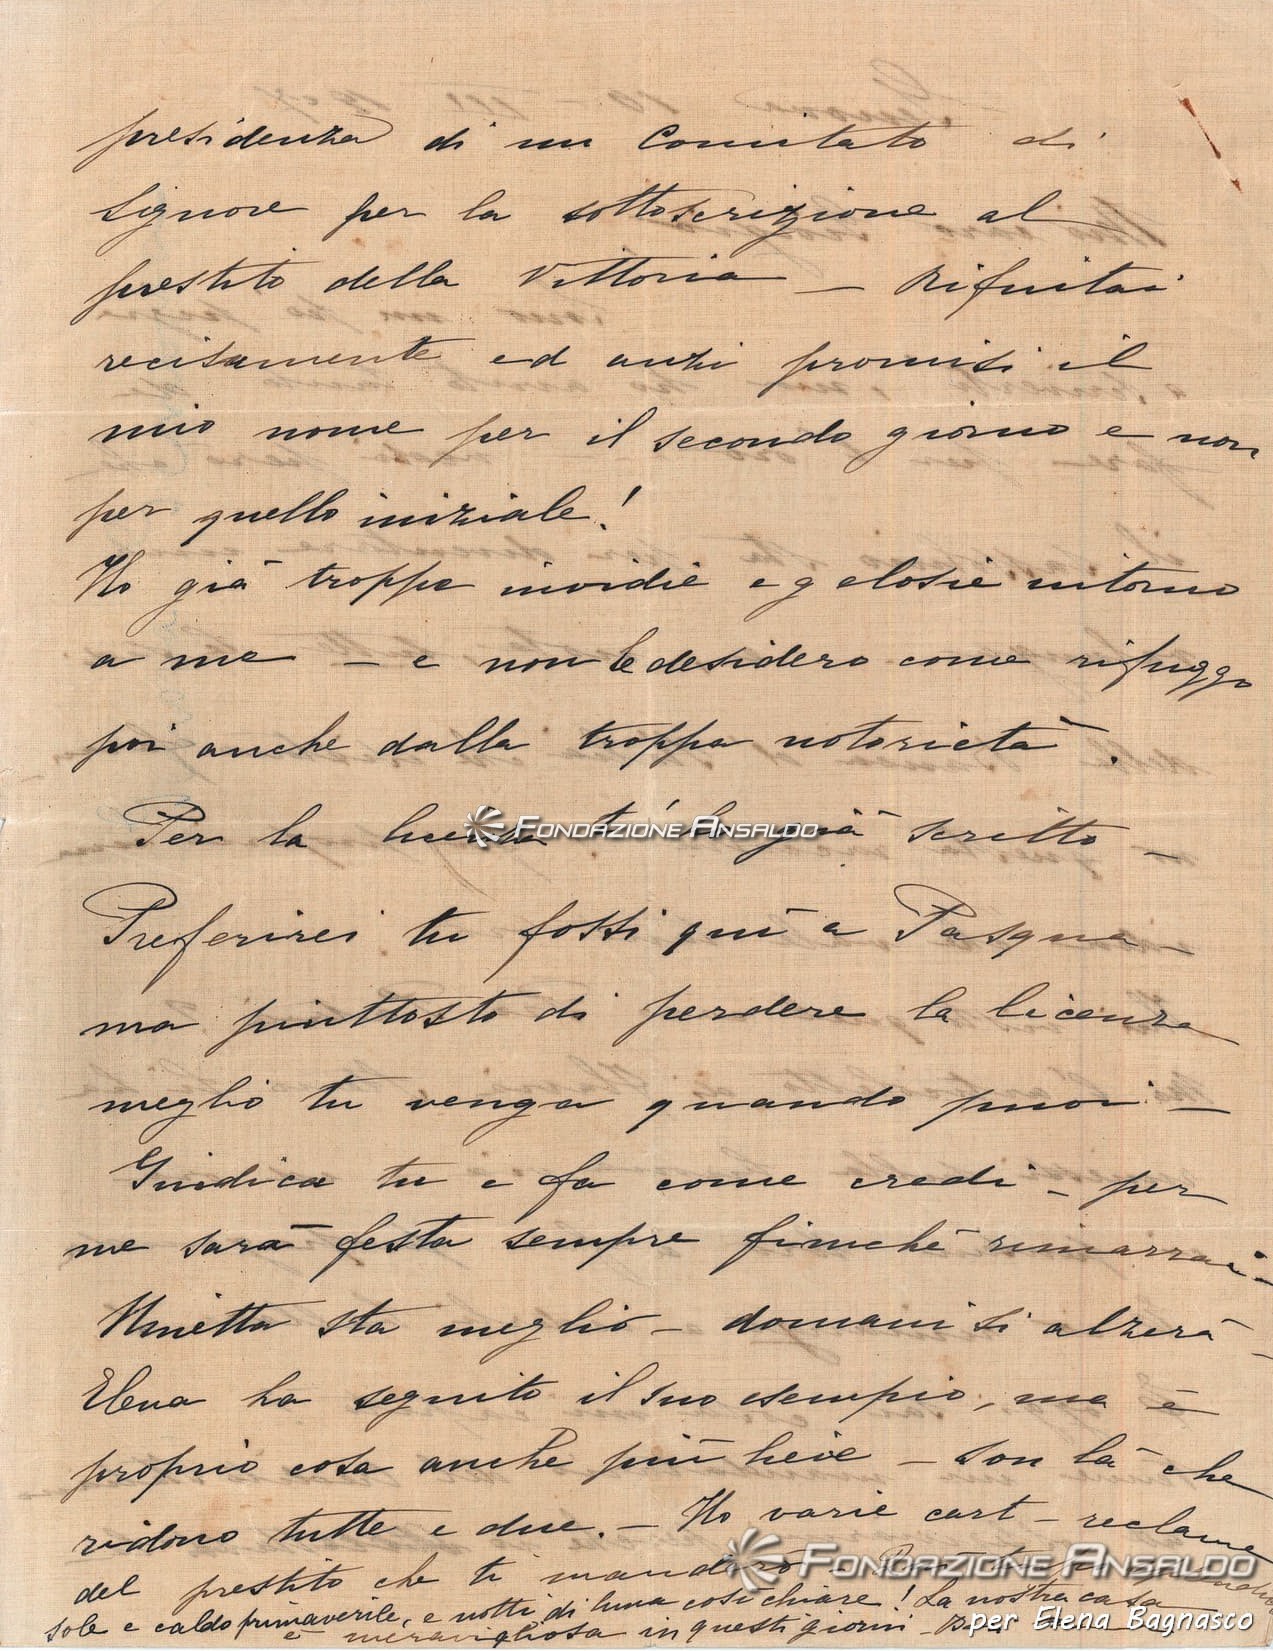 presidenza di un Comitato di
signore per la sottoscrizione al
prestito della Vittoria — Rifiutai
recisamente ed anzi promisi il
mio nome per il secondo giorno e non
per quello iniziale!
Ho già troppe invidie e gelosie intorno
a me — e non le desidero come rifuggo
poi anche dalla troppa notorietà.
Per la licenza t'ho già scritto —
FONDAZIONE ANSALDO
Preferirei tu fossi quì a Pasqua —
ma piuttosto di perdere la licenza
meglio tu venga quando puoi —
Giudica tu e fa come credi — per
me sarà festa sempre finchè rimarrai —
Ninetta sta meglio — domani si alzerà —
Elena ha seguito il suo esempio, ma è
proprio cosa anche più lieve — son là che
ridono tutte e due. — Ho varie cart — reclame
del prestito che ti manderò
FONDAZIONE ANSALDO
sole e caldo primaverile, e notti di luna così chiare! La nostra casa
è meravigliosa in questi giorni —
per Elena Bagnasco